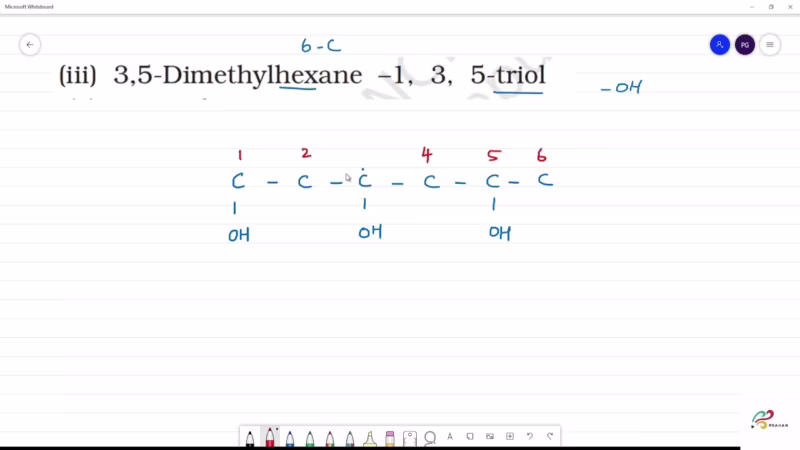 Microsoft Whiteboard
6-C
(iii) 3,5-Dimethylhexane –1, 3, 5-triol
-OH
PG
1 2 4 5 6
C - C - C - C - C - C
OH OH OH
PRAHAR